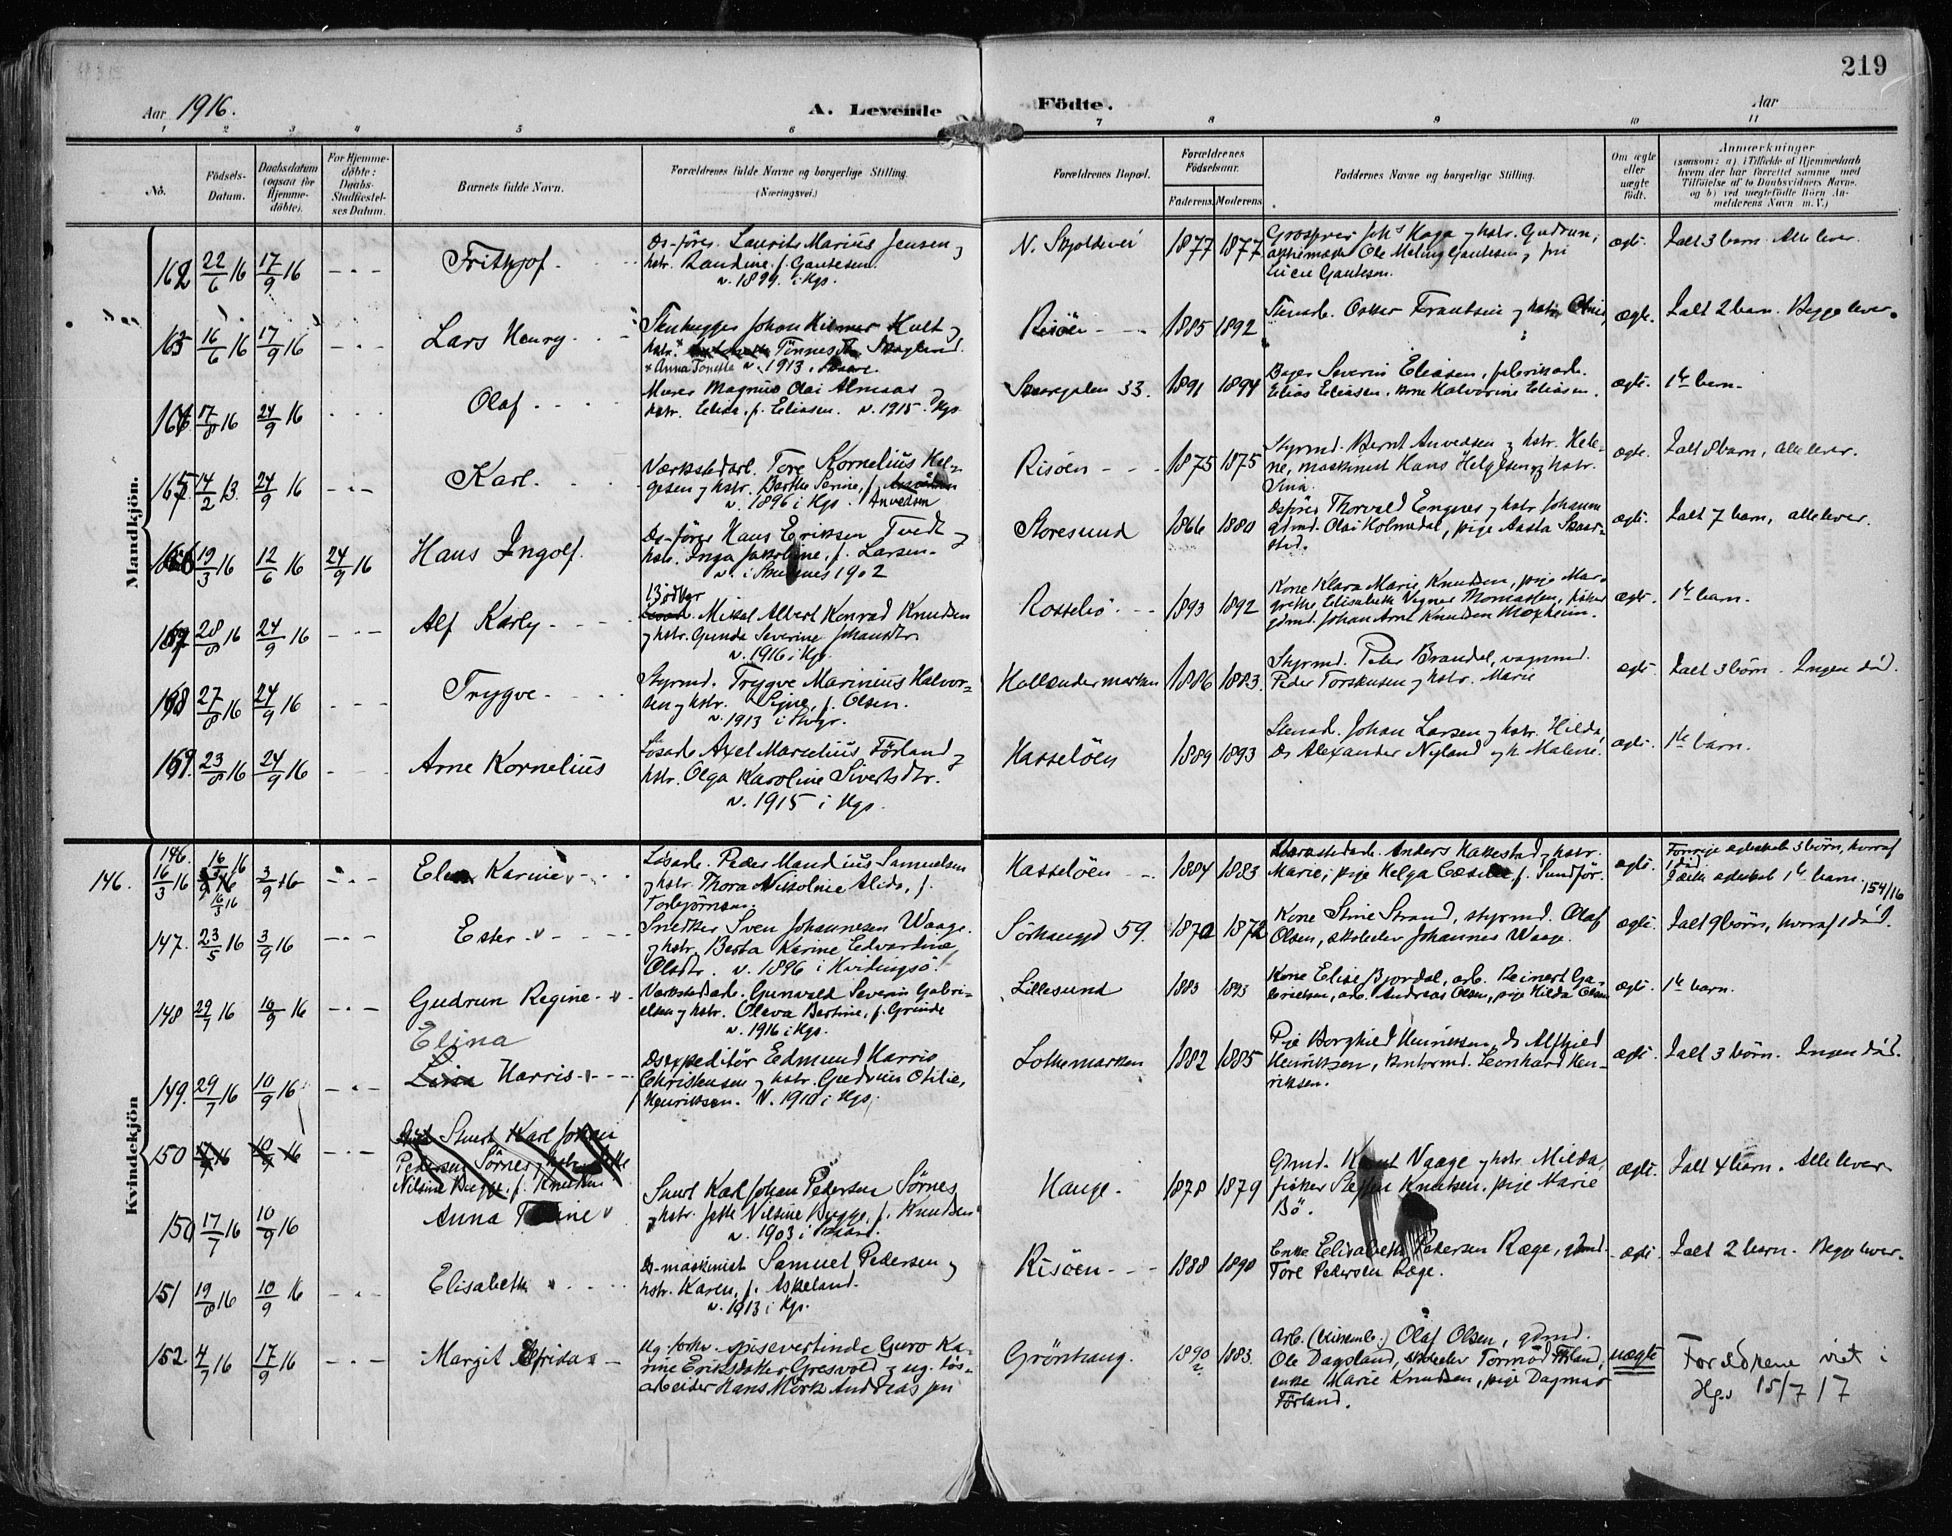 219
Aar 1916.
A. Levende Födte.
Aar
1 2 3 4 5 6 7 8 9 10 11
No.
Födsels-Datum.
Daabsdatum (ogsaa for Hjemme-döbte).
For Hjemme-döbte: Daabs-Stadfæstel-ses Datum.
Barnets fulde Navn.
Forældrenes fulde Navne og borgerlige Stilling.
(Næringsvei.)
Forældrenes Bopæl.
Forældrenes Födselsaar.
Faderens. Moderens.
Faddernes Navne og borgerlige Stilling.
Om ægte eller uægte födt.
Anmærkninger
(saasom: a) i Tilfælde af Hjemmedaab
hvem der har forrettet samme med
Tilföielse af to Daabsvidners Navne,
og b) ved uægtefödte Börn An-
melderens Navn m. V.)
Mandkjön.
162 22/6 16 17/9 16 Fritkjof.
Ds-förer. Laurits Marius Jensen og
hstr. Randine, f. Gautesen.
v. 1899. i Hgs.
N. Skjoldevei 1877 1877
Grosserer Johs Haga og hstr. Gudrun,
Ole Meling Gautesen, frk
Gautesen.
ægte. Ialt 3 barn. Alle lever.
163 16/6 16 17/9 16 Lars Henry
Stenhugger Johan Hilmer Hult og
hstr. Tönnesdtr. Skogland.
x Anna Tonette v. 1913 i Skaare.
Risöen 1885 1892
Stenarb. Oskar Frantsen og hstr. Oline,
ægte. Ialt 2 barn. Begge lever.
164 17/8 16 24/9 16 Olaf
Murer Magnus Olai Almaas og
hstr. Elida, f. Eliasen. v. 1915. Hgs.
Skaregaten 33. 1891 1894
Bager Severin Eliasen, fabrikarb.
Elias Eliasen, kone Halvorine Eliasen.
ægte. 1te barn.
165 14/2 13. 24/9 16 Karl.
Værkstedarb. Tore Kornelius Hel-
gesen og hstr. Berthe Serine, f.
v. 1896 i Hgs. Anvedsen
Risöen 1875 1875
Styrmd. Bernt Anvedsen og hstr. Hele-
ne, maskinist Hans Helgesen og hstr.
Sina.
ægte. Ialt 8 barn, alle lever.
166 19/3 16 12/6 16 24/9 16 Hans Ingolf.
Ds-förer Hans Eriksen Tvedt og
hstr. Inga Jakobine, f. Larsen.
v. i Skudesnes 1902
Storesund 1866 1880
Dsförer Thorvald Engnes og hstr. Johanna
gdmd. Olai Holmedal, pige Aasta Skaar-
sted.
ægte. Ialt 7 barn, alle lever.
167 28/8 16 24/9 16 Alf Karly
Bödker
Mikal Albert Konrad Knudsen
og hstr. Gunda Severine Johansdtr.
v. 1916 i Hgs.
Rossebö 1893 1892
Kone Klara Marie Knudsen, pige Mar-
grethe Elisabeth Vegner Thomassen, fisker
gdmd. Johan Arnt Knudsen Moxheim.
ægte. 1te barn.
168 27/8 16 24/9 16 Trygve
Styrmd. Trygve Marinius Halvor-
sen og hstr. Signe, f. Olsen.
v. 1913 i Stvgr.
Hollendermarken 1886 1883.
Styrmd. Peter Brandal, vognmd.
Peder Torskusen og hstr. Marie
ægte. Ialt 3 börn. Ingen död.
169. 23/8 16 24/9 16 Arne Kornelius
Lösarb. Axel Marselius Förland og
hstr. Olga Karoline Sivertsdtr.
v. 1915 i Hgs.
Hasselöen 1889 1893
Stenarb. Johan Larsen og hstr. Hilda,
Do Alexander Nyland og h. Malene.
ægte. 1te barn.
Kvindekjön
146. 146. 16/3 16 16/3 16 3/9 16 Karine
Lösarb. Peder Mandius Samuelsen
og hstr. Thora Nikoline Alida, f.
Torbjörnsen.
Hasselöen 1884 1883
Værkstedarb. Anders Kallestad og hstr.
Marie, pige Helga f. Sundför.
ægte. Forrige ægteskab 3 börn, hvoraf
1 död.
I dette ægteskab 1te barn. 154/16
147. 23/5 16 3/9 16 Ester
Snedker Sven Johannesen Waage
og hstr. Berta Karine Edvardine
Olsdtr. v. 1896 i Kvitingsö.
Sörhauggd 59. 1872 1872
Kone Stine Strand, styrmd. Olaf
Olsen, skoleelev Johannes Waage.
ægte. Ialt 9 börn, hvoraf 1 död.
148 29/7 16 10/9 16 Gudrun Regine
Værkstedarb. Gunvald Severin Gabri-
elsen og hstr. Olava Bertine, f. Grinde
v. 1916 i Hgs.
Lillesund 1883 1893
Kone Elise Bjordal, arb. Reinert Ga-
brielsen, arb. Andreas Olsen, pige Hilda Olsen
ægte. 1te barn.
149. 29/7 16 10/9 16 Elina
Harris
Dsexpeditör Edmund Harris
Christensen og hstr. Gudrun Otilie,
f. Henriksen. v. 1910 i Hgs.
Lothemarken 1882 1885
Pige Borghild Henriksen, do Alfhild
Henriksen, kontormd. Leonhard Hen-
riksen.
ægte. Ialt 3 börn. Ingen död.
150 17/7 16 10/9 16
Stuert Karl Johan
Pedersen Sörnes og hstr. Jette
Nilsine Bugge, f. Knudsen
150 17/7 16 10/9 16 Anna
Stuert Karl Johan Pedersen Sörnes
og hstr. Jette Nilsine Bugge, f. Knudsen
v. 1903 i Skaare.
Hauge. 1878 1879
Gdmd. Knut Vaage og hstr. Milda,
fisker Steffen Knutsen, pige Marie
Bö.
ægte. Ialt 4 barn. Alle lever
151 19/8 16 10/9 16 Elisabeth
Ds-maskinist Samuel Pedersen og
hstr. Karen, f. Askeland.
v. 1913 i Hgs.
Risöen 1888 1890
Enke Elisabeth Pedersen Ræge, gdmd.
Tore Pedersen Ræge.
ægte Ialt 2 barn. Begge lever.
152 4/7 16 17/9 16 Margit Elfrida
Ug. forhv. spisevertinde Guro Ka-
rine Eriksdatter Gresvold og ug. lös-
arbeider Hans Mörk Andreas sen
Grönhaug. 1890 1883.
Arb. Olaf Olsen, gdmd.
Ole Dagsland, skoleelev Tormod Förland,
enke Marie Knudsen, pige Dagmar
Förland.
uægte Foreldrene viet i
Hgs 15/7 17